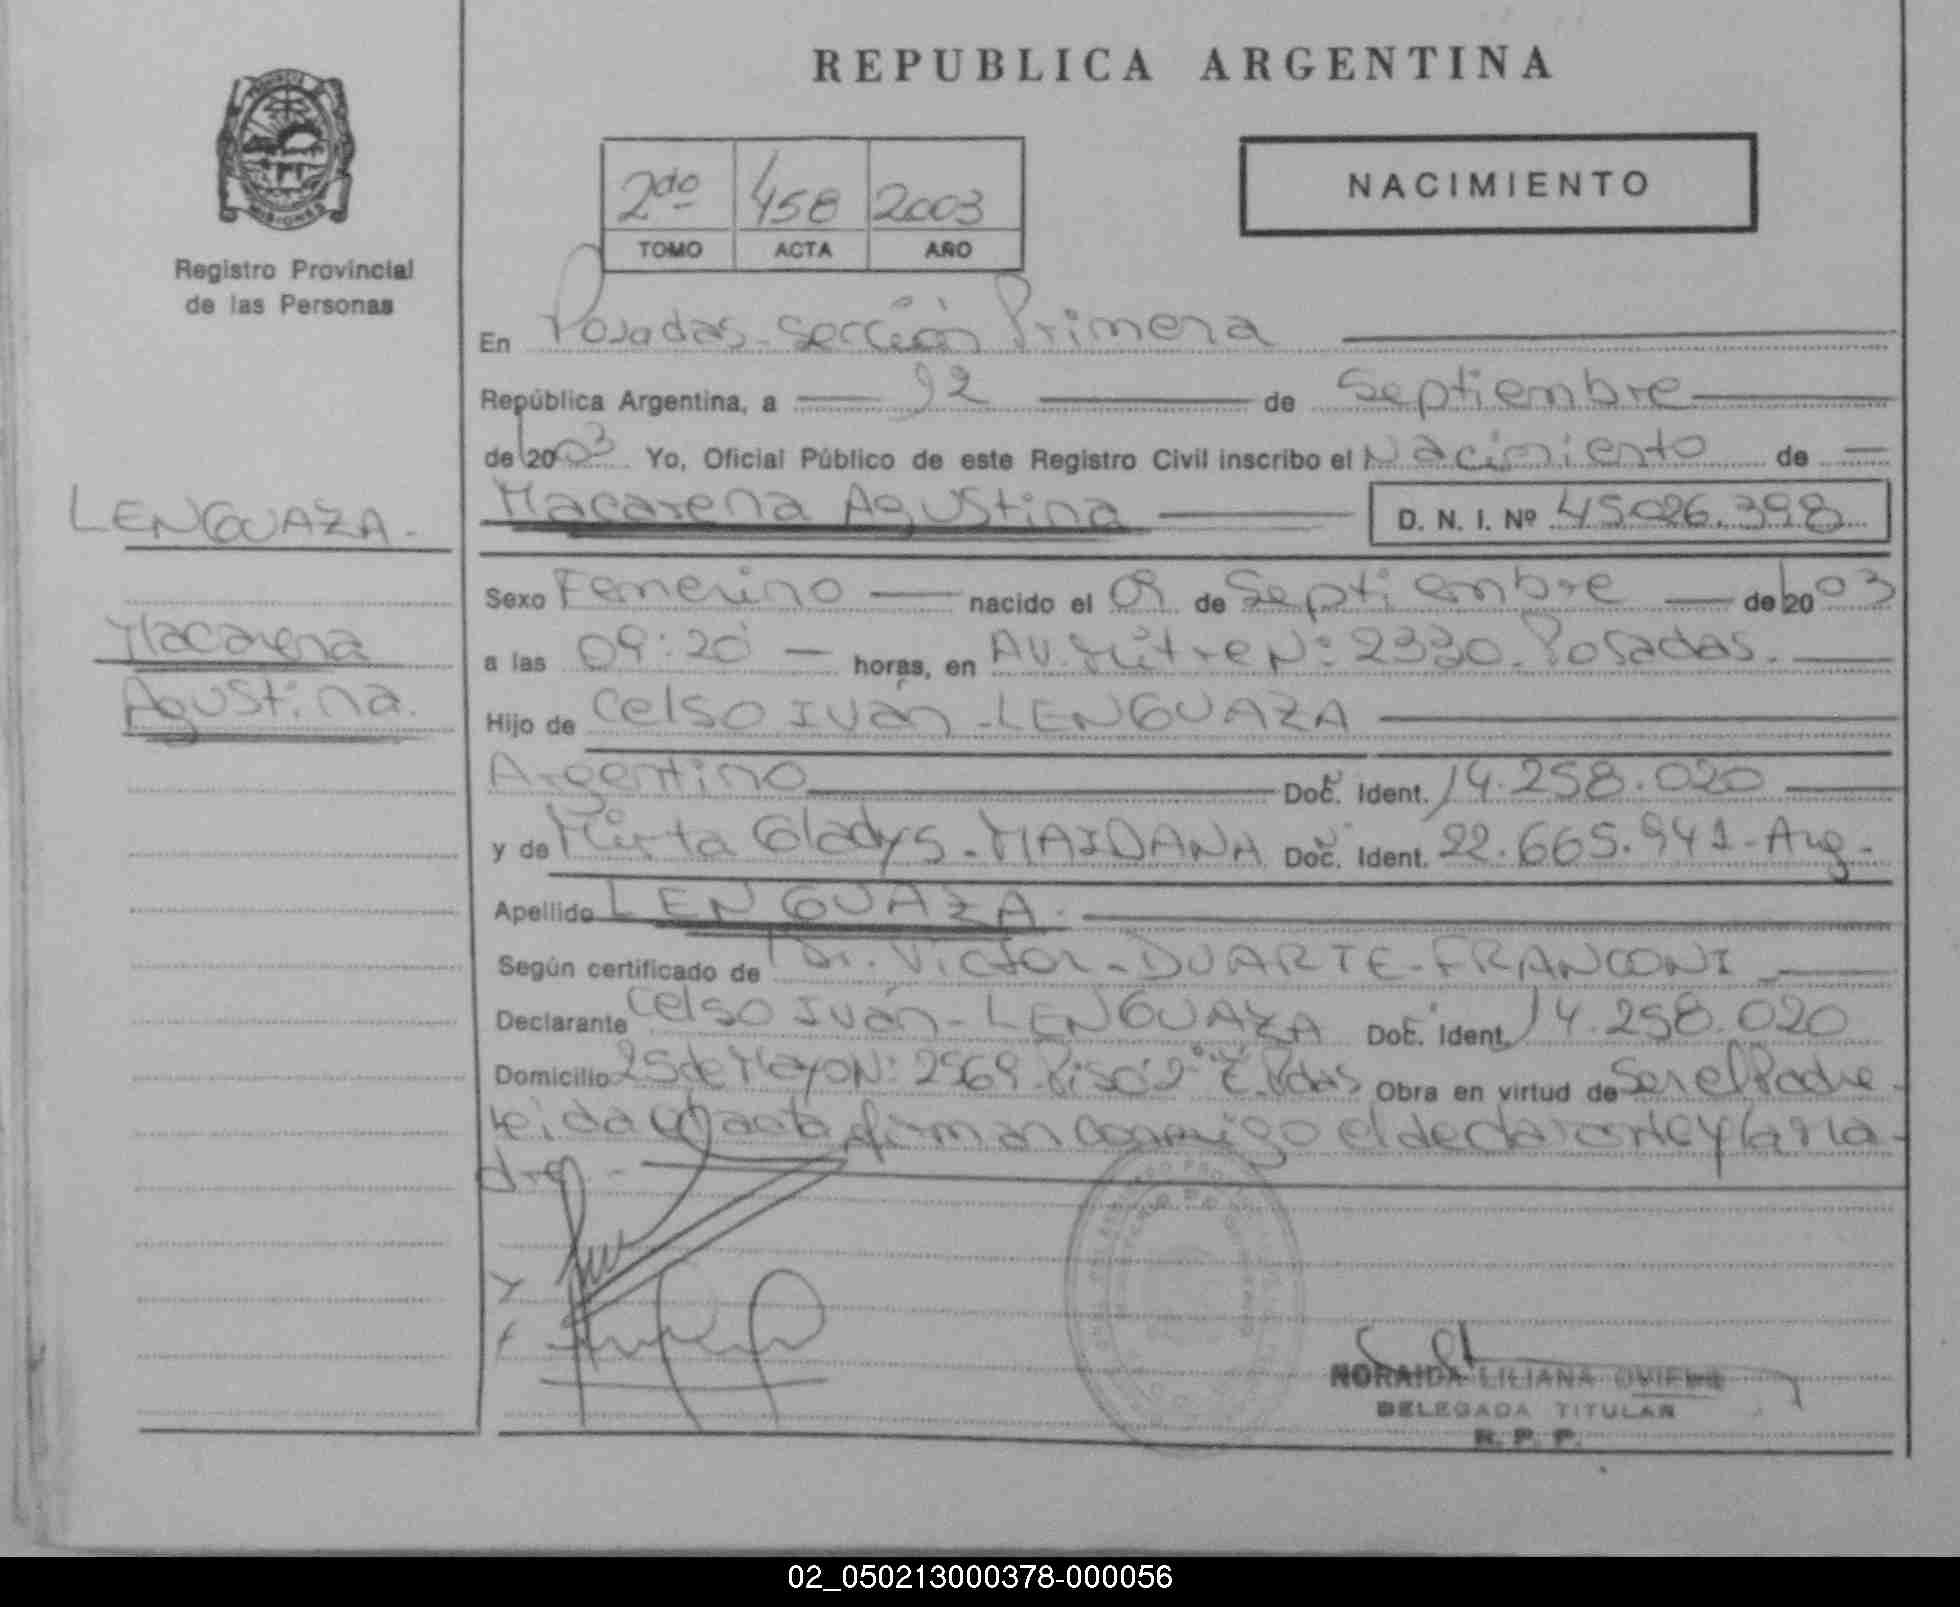 REPUBLICA ARGENTINA
MISIONES
Registro Provincial
de las Personas
2do 458 2003
TOMO ACTA AÑO
NACIMIENTO
En Posadas - Sección Primera
República Argentina, a 12 de Septiembre
de 2003 Yo, Oficial Público de este Registro Civil inscribo el Nacimiento de
Macarena Agustina D. N. I. Nº 45026.398
LENGUAZA.
Macarena
Agustina.
Sexo Femenino nacido el 09 de Septiembre de 2003
a las 09:20 horas, en Av. Mitre Nº 2330. Posadas.
Hijo de Celso Iván - LENGUAZA
Argentino Doc. Ident. 14.258.020
y de Mirta Gladys - MAIDANA Doc. Ident. 22.665.941 - Arg.
Apellido LENGUAZA.
Según certificado de Dr. Victor - DUARTE - FRANCONI
Declarante Celso Iván - LENGUAZA Doc. Ident. 14.258.020
Domicilio 25 de Mayo Nº 2569 Piso 2º Pdas Obra en virtud de Ser el Padre -
Leida el acta firman conmigo el declarante y la Ma-
dre. -
NORAIDA LILIANA
DELEGADA TITULAR
R. P. P.
02_050213000378-000056